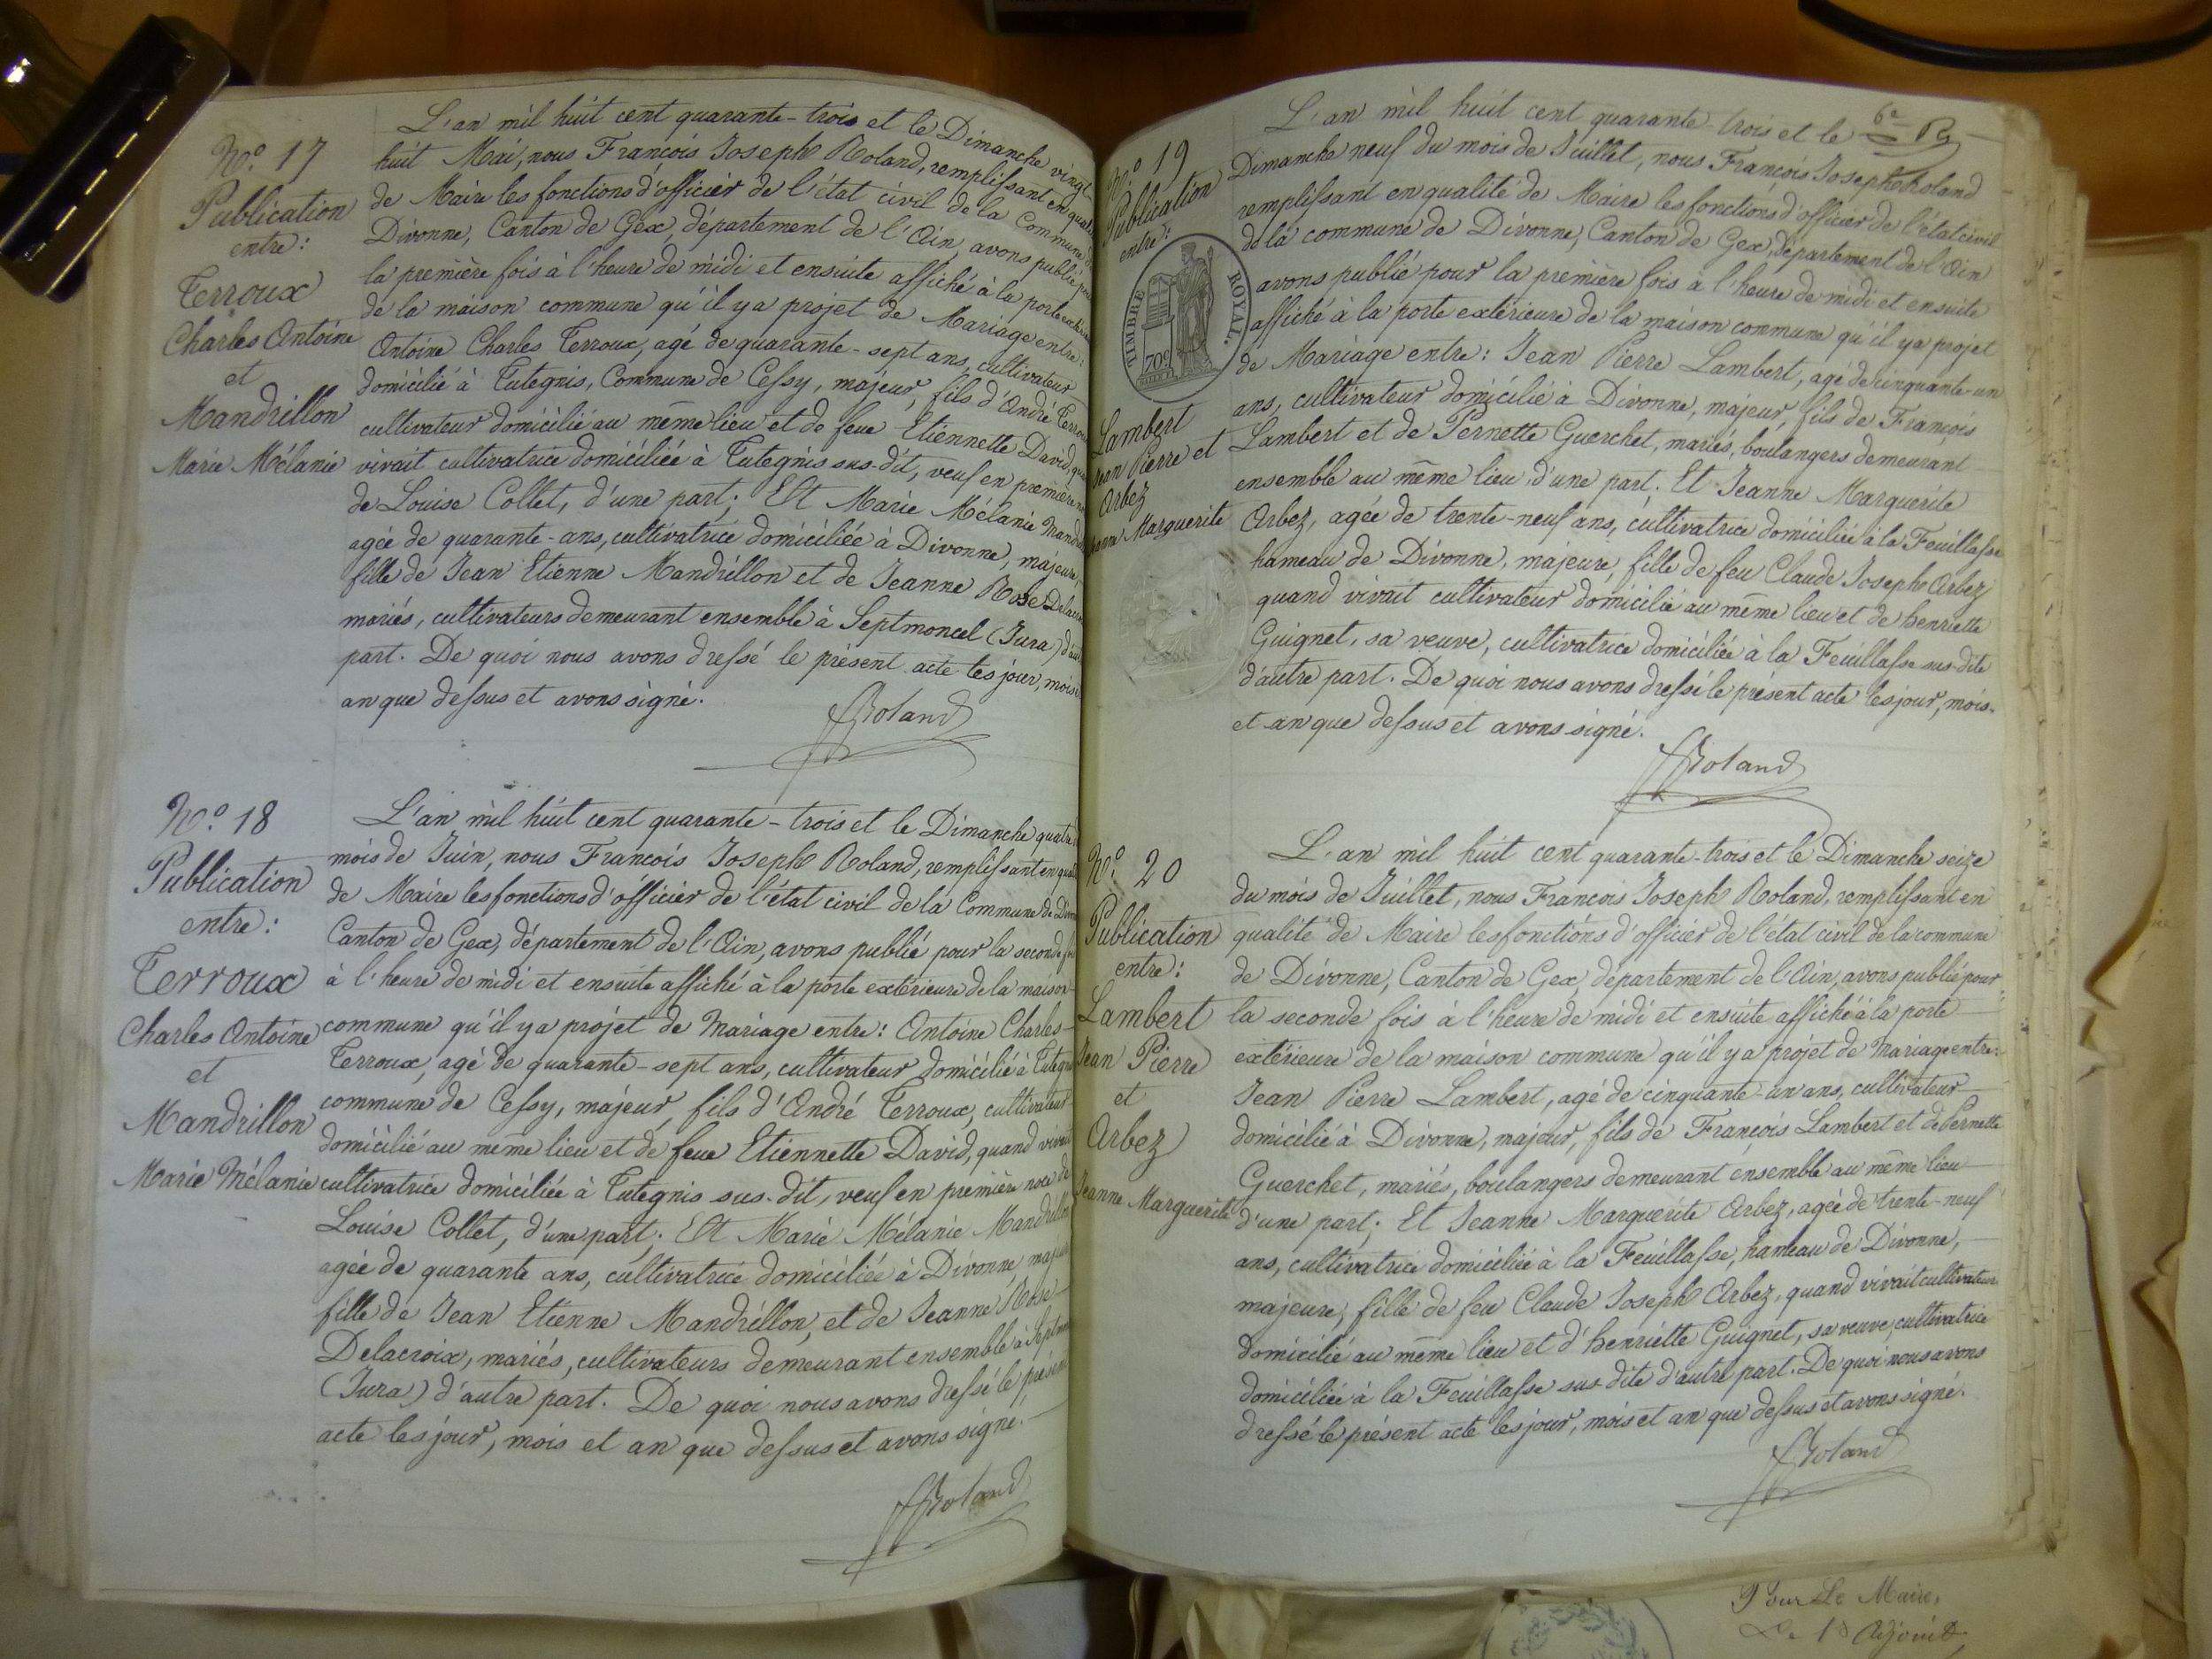 N.º 17
Publication
entre:
Terroux
Charles Antoine
et
Mandrillon
Marie Mélanie
L'an mil huit cent quarante-trois et le Dimanche vingt-
huit Mai, nous François Joseph Roland, remplissant en qual
de Maire les fonctions d'officier de l'état civil de la Commune
Divonne, Canton de Gex, département de l'Ain, avons publié pour
la première fois à l'heure de midi et ensuite affiché à la porte
de la maison commune qu'il y a projet de Mariage entre:
Antoine Charles Terroux, agé de quarante-sept ans, cultivateur
domicilié à Tutegnis, Commune de Cessy, majeur, fils d'André Terroux
cultivateur domicilié au même lieu et de feue Etiennette David,
vivait cultivatrice domiciliée à Tutegnis sus-dit, veuf en première
de Louise Collet, d'une part; Et Marie Mélanie Mandri
agée de quarante-ans, cultivatrice domiciliée à Divonne, majeure,
fille de Jean Etienne Mandrillon et de Jeanne Rose Delacroi
mariés, cultivateurs demeurant ensemble à Septmoncel (Jura) d'au
part. De quoi nous avons dressé le présent acte les jour, mois
an que dessus et avons signé.
FJRoland
N.º 18
Publication
entre:
Terroux
Charles Antoine
et
Mandrillon
Marie Mélanie
L'an mil huit cent quarante-trois et le Dimanche quatre
mois de Juin, nous François Joseph Roland, remplissant en qual
de Maire les fonctions d'officier de l'état civil de la Commune de Divon
Canton de Gex, département de l'Ain, avons publié pour la seconde fois
à l'heure de midi et ensuite affiché à la porte extérieure de la maison
commune qu'il y a projet de Mariage entre: Antoine Charles
Terroux, agé de quarante-sept ans, cultivateur domicilié à Tutegni
commune de Cessy, majeur, fils d'André Terroux, cultivateur
domicilié au même lieu et de feue Etiennette David, quand vivait
cultivatrice domiciliée à Tutegnis sus-dit, veuf en première noce de
Louise Collet, d'une part; Et Marie Mélanie Mandrillon
agée de quarante ans, cultivatrice domiciliée à Divonne, maj
fille de Jean Etienne Mandrillon, et de Jeanne Rose
Delacroix, mariés, cultivateurs demeurant ensemble à Septmon
(Jura) d'autre part. De quoi nous avons dressé le présent
acte les jour, mois et an que dessus et avons signé.
FJRoland
6e
N.º 19
Publication
entre:
TIMBRE ROYAL.
70c
Lambert
Jean Pierre et
Arbez
Jeanne Marguerite
L'an mil huit cent quarante-trois et le
Dimanche neuf du mois de Juillet, nous François Joseph Roland
remplissant en qualité de Maire les fonctions d'officier de l'état civil
de la commune de Divonne, Canton de Gex, département de l'Ain
avons publié pour la première fois à l'heure de midi et ensuite
affiché à la porte extérieure de la maison commune qu'il y a projet
de Mariage entre: Jean Pierre Lambert, agé de cinquante-un
ans, cultivateur domicilié à Divonne, majeur, fils de François
Lambert et de Pernette Guerchet, mariés, boulangers demeurant
ensemble au même lieu d'une part; Et Jeanne Marguerite
Arbez, agée de trente-neuf ans, cultivatrice domiciliée à la Feuillasse
hameau de Divonne, majeure, fille de feu Claude Joseph Arbez
quand vivait cultivateur domicilié au même lieu et de henriette
Guignet, sa veuve, cultivatrice domiciliée à la Feuillasse sus-dite
d'autre part. De quoi nous avons dressé le présent acte les jour, mois
et an que dessus et avons signé.
FJRoland
N.º 20
Publication
entre:
Lambert
Jean Pierre
et
Arbez
Jeanne Marguerite
L'an mil huit cent quarante-trois et le Dimanche seize
du mois de Juillet, nous François Joseph Roland, remplissant en
qualité de Maire les fonctions d'officier de l'état civil de la commune
de Divonne, Canton de Gex, département de l'Ain, avons publié pour
la seconde fois à l'heure de midi et ensuite affiché à la porte
extérieure de la maison commune qu'il y a projet de Mariage entre:
Jean Pierre Lambert, agé de cinquante-un ans, cultivateur
domicilié à Divonne, majeur, fils de François Lambert et de Pernette
Guerchet, mariés, boulangers demeurant ensemble au même lieu
d'une part; Et Jeanne Marguerite Arbez, agée de trente-neuf
ans, cultivatrice domiciliée à la Feuillasse, hameau de Divonne,
majeure, fille de feu Claude Joseph Arbez, quand vivait cultivateur
domicilié au même lieu et d'henriette Guignet, sa veuve, cultivatrice
domiciliée à la Feuillasse sus-dite d'autre part. De quoi nous avons
dressé le présent acte les jour, mois et an que dessus et avons signé.
FJRoland
Pour Le Maire,
Adjoint